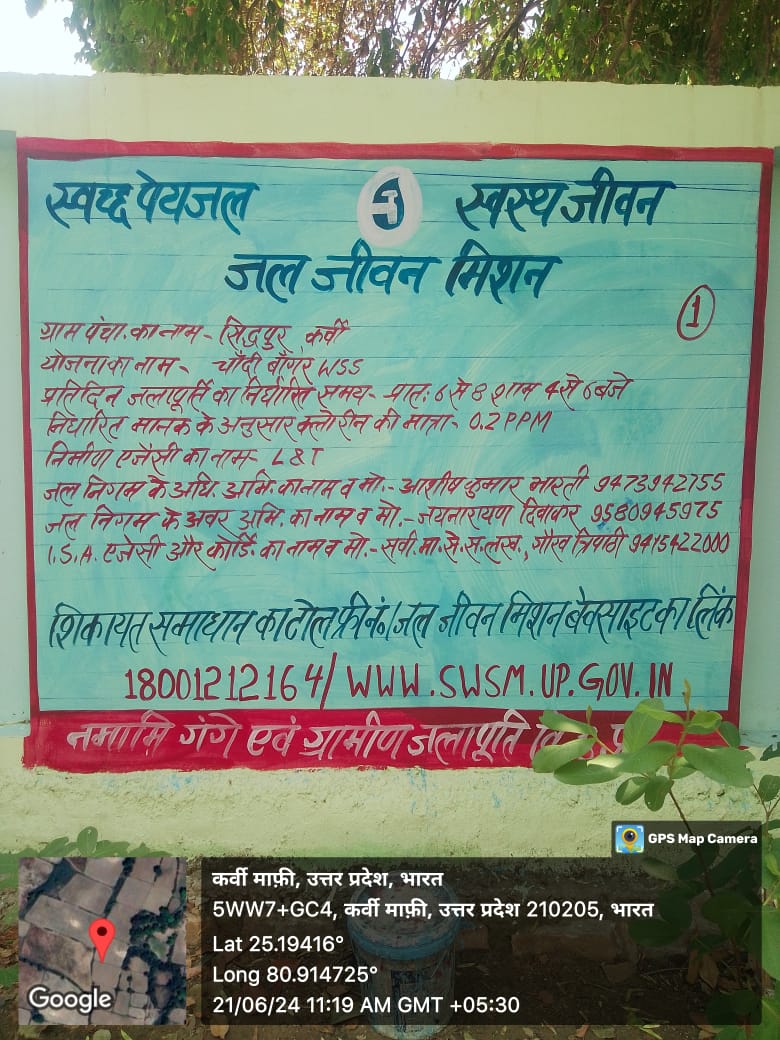 स्वच्छ पेयजल स्वस्थ जीवन
जल जीवन मिशन
1
ग्राम पंचा. का नाम - सिद्धपुर, कर्वी
योजना का नाम - चाँदी बाँगर WSS
प्रतिदिन जलापूर्ति का निर्धारित समय - प्रात: 6 से 8 शाम 4 से 6 बजे
निर्धारित मानक के अनुसार क्लोरीन की मात्रा - 0.2 PPM
निर्माण एजेंसी का नाम - L&T
जल निगम के अधि. अभि. का नाम व मो. - आशीष कुमार भारती 9473942755
जल निगम के अवर अभि. का नाम व मो. - जयनारायण दिवाकर 9580945975
I.S.A. एजेंसी और कोर्डि. का नाम व मो. - सर्वो. मा. से. स. लख., गौरव त्रिपाठी 9415422000
शिकायत समाधान का टोल फ्री नं. / जल जीवन मिशन बेवसाइट का लिंक
18001212164/ WWW.SWSM.UP.GOV.IN
नमामि गंगे एवं ग्रामीण जलापूर्ति
GPS Map Camera
कर्वी माफ़ी, उत्तर प्रदेश, भारत
5WW7+GC4, कर्वी माफ़ी, उत्तर प्रदेश 210205, भारत
Lat 25.19416°
Long 80.914725°
21/06/24 11:19 AM GMT +05:30
Google